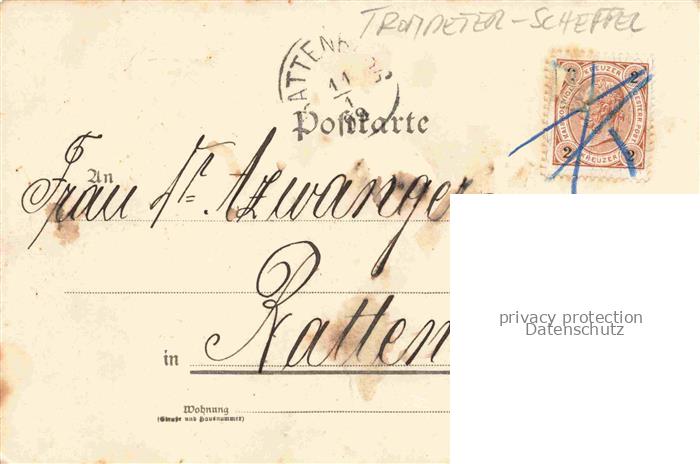 TROMPETER-SCHEFFEL
RATTENBERG
11
1
99
Postkarte
2 KREUZER 2
KAIS. KOENIGL. OESTERR. POST
2 KREUZER 2
An
Frau Dr. Azwanger
Ratten
in
Wohnung
(Straße und Hausnummer)
privacy protection
Datenschutz